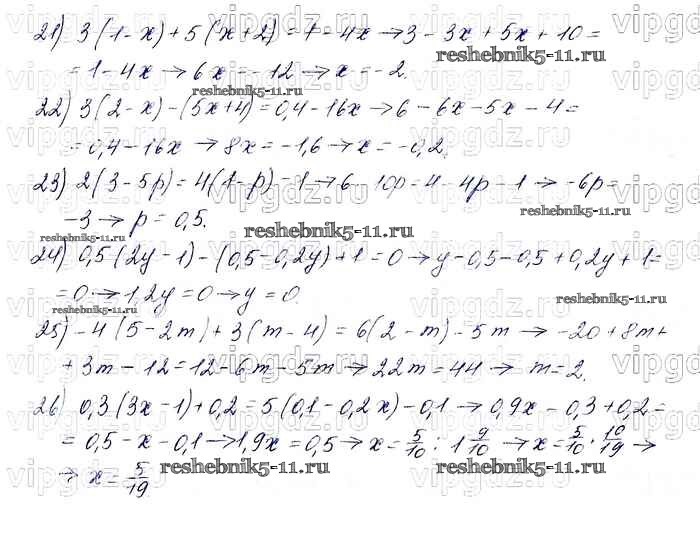 21) 3(1-x)+5(x+2)=1-4x→3-3x+5x+10=
=1-4x→6x=-12→x=-2.
22) 3(2-x)-(5x+4)=0,4-16x→6-6x-5x-4=
=0,4-16x→8x=-1,6→x=-0,2.
23) 2(3-5p)=4(1-p)-1→6-10p=4-4p-1→-6p=
-3→p=0,5.
24) 0,5(2y-1)-(0,5-0,2y)+1=0→y-0,5-0,5+0,2y+1=
=0→1,2y=0→y=0.
25) -4(5-2m)+3(m-4)=6(2-m)-5m→-20+8m+
+3m-12=12-6m-5m→22m=44→m=2.
26 0,3(3x-1)+0,2=5(0,1-0,2x)-0,1→0,9x-0,3+0,2=
=0,5-x-0,1→1,9x=0,5→x=5/10:1 9/10→x=5/10·10/19→
→x=5/19
vipgdz.ru
reshebnik5-11.ru